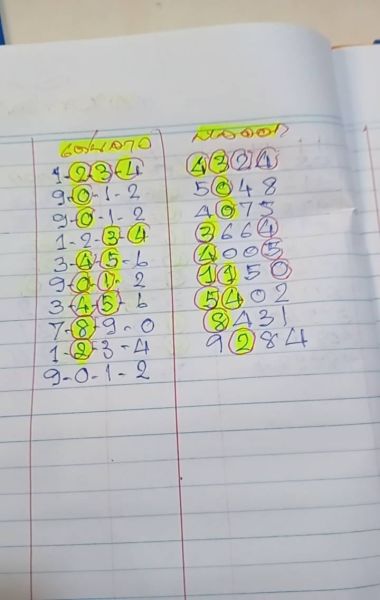 ผลออก
1-2-3-4 4324
9-0-1-2 5048
9-0-1-2 4075
1-2-3-4 3664
3-4-5-6 4005
9-0-1-2 1150
3-4-5-6 5402
7-8-9-0 8431
1-2-3-4 9284
9-0-1-2